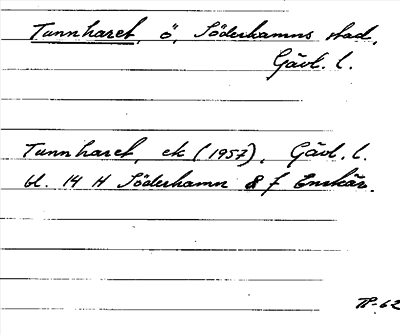 Tunnharet, ö, Söderhamns stad,
Gävl. l.
Tunnharet, ek (1957), Gävl. l.
bl. 14 H Söderhamn 8 f Enskär.
TP-62